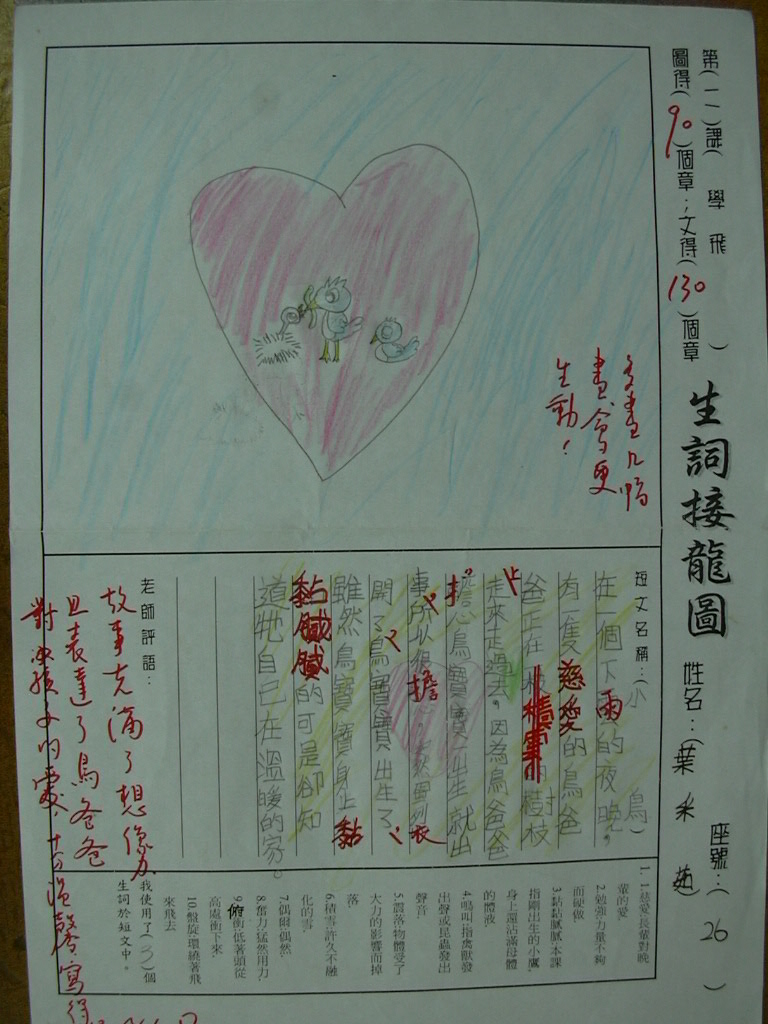 生詞接龍圖
姓名：(葉禾茹)
座號：(26)
第(一)課(學飛)
圖得(90)個章；文得(130)個章
多畫几幅
畫會更
生動！
短文名稱：(小鳥)
在一個下雨的夜晚。
有一隻慈愛的鳥爸
爸正在積雪的樹枝
走來走過去。因為鳥爸爸
擔心鳥寶寶一出生就出
事所以很擔
開了鳥寶寶出生了
雖然鳥寶寶身上黏
黏膩膩的可是卻知
道牠自己在溫暖的家。
老師評語：
故事充滿了想像力
且表達了鳥爸爸
對小孩子的愛，十分溫馨寫得
1. 慈愛：長輩對晚
輩的愛
2. 勉強：力量不夠
而硬做
3. 黏黏膩膩：本課
指剛出生的小鷹
身上還沾滿母體
的體液
4. 鳴叫：指禽獸發
出聲或昆蟲發出
聲音
5. 震落：物體受了
大力的影響而掉
落
6. 積雪：許久不融
化的雪
7. 偶爾：偶然
8. 奮力：猛然用力
9. 俯衝：低著頭從
高處衝下來
10. 盤旋：環繞著飛
來飛去
我使用了(3)個
生詞於短文中。